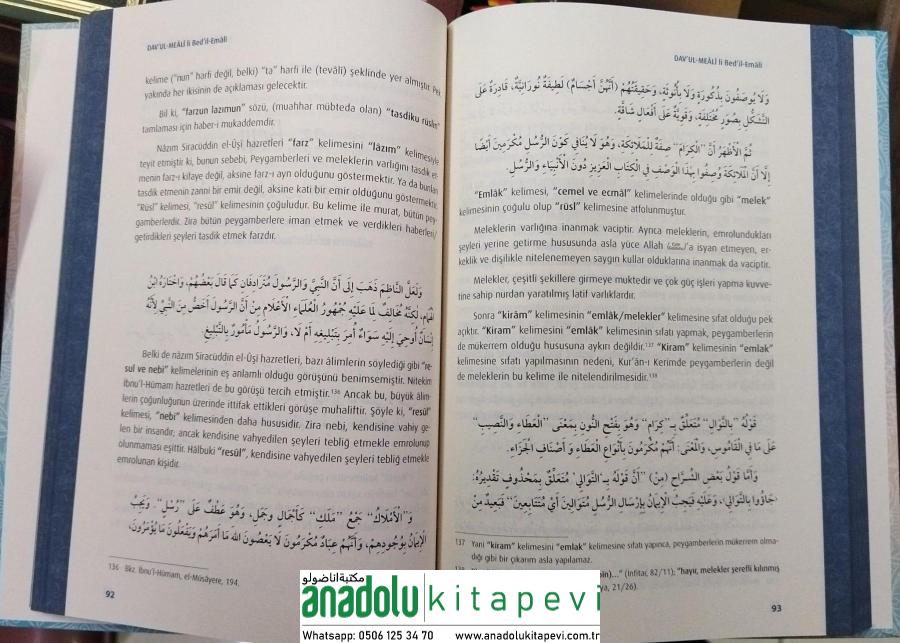 DAV'UL-MEÂLÎ li Bed'il-Emâlî
kelime ("nun" harfi değil, belki) "ta" harfi ile (tevâlî) şeklinde yer almıştır. Pek
yakında her ikisinin de açıklaması gelecektir.
Bil ki, "farzun lazımun" sözü, (muahhar mübteda olan) "tasdiku rüslin"
tamlaması için haber-i mukaddemdir.
Nâzım Siracüddin el-Ûşî hazretleri "farz" kelimesini "lâzım" kelimesiyle
teyit etmiştir ki, bunun sebebi, Peygamberleri ve meleklerin varlığını tasdik et-
menin farz-ı kifaye değil, aksine farz-ı ayn olduğunu göstermektir. Ya da bunları
tasdik etmenin zannî bir emir değil, aksine kati bir emir olduğunu göstermektir.
"Rüsl" kelimesi, "resûl" kelimesinin çoğuludur. Bu kelime ile murat, bütün pey-
gamberlerdir. Zira bütün peygamberlere iman etmek ve verdikleri haberleri/
getirdikleri şeyleri tasdik etmek farzdır.
وَلَعَلَّ النَّاظِمَ ذَهَبَ إِلَى أَنَّ النَّبِيَّ وَالرَّسُولَ مُتَرَادِفَانِ كَمَا قَالَ بَعْضُهُمْ، وَاخْتَارَهُ ابْنُ
الْهُمَامِ، لَكِنَّهُ مُخَالِفٌ لِمَا عَلَيْهِ جُمْهُورُ الْعُلَمَاءِ الْأَعْلَامِ مِنْ أَنَّ الرَّسُولَ أَخَصُّ مِنَ النَّبِيِّ لِأَنَّهُ
إِنْسَانٌ أُوحِيَ إِلَيْهِ سَوَاءٌ أُمِرَ بِتَبْلِيغِهِ أَمْ لَا، وَالرَّسُولُ مَأْمُورٌ بِالتَّبْلِيغِ.
Belki de nâzım Siracüddin el-Ûşî hazretleri, bazı âlimlerin söylediği gibi "re-
sul ve nebi" kelimelerinin eş anlamlı olduğu görüşünü benimsemiştir. Nitekim
İbnu'l-Hümam hazretleri de bu görüşü tercih etmiştir.136 Ancak bu, büyük âlim-
lerin çoğunluğunun üzerinde ittifak ettikleri görüşe muhaliftir. Şöyle ki, "resûl"
kelimesi, "nebi" kelimesinden daha hususidir. Zira nebi, kendisine vahiy ge-
len bir insandır; ancak kendisine vahyedilen şeyleri tebliğ etmekle emrolunup
olunmaması eşittir. Hâlbuki "resûl", kendisine vahyedilen şeyleri tebliğ etmekle
emrolunan kişidir.
وَ"الْأَمْلَاكُ" جَمْعُ "مَلَكٍ" كَأَجْمَالٍ وَجَمَلٍ، وَهُوَ عَطْفٌ عَلَى "رُسْلٍ". وَيَجِبُ
الْإِيمَانُ بِوُجُودِهِمْ، وَأَنَّهُمْ عِبَادٌ مُكْرَمُونَ لَا يَعْصُونَ اللهَ مَا أَمَرَهُمْ وَيَفْعَلُونَ مَا يُؤْمَرُونَ،
136 Bkz. İbnu'l-Hümam, el-Müsâyere, 194.
92
DAV'UL-MEÂLÎ li Bed'il-Emâlî
وَلَا يُوصَفُونَ بِذُكُورَةٍ وَلَا بِأُنُوثَةٍ، وَحَقِيقَتُهُمْ (أَنَّهُنَّ أَجْسَامٌ) لَطِيفَةٌ نُورَانِيَّةٌ، قَادِرَةٌ عَلَى
التَّشَكُّلِ بِصُوَرٍ مُخْتَلِفَةٍ، وَقَوِيَّةٌ عَلَى أَفْعَالٍ شَاقَّةٍ.
ثُمَّ الْأَظْهَرُ أَنَّ "الْكِرَامَ" صِفَةٌ لِلْمَلَائِكَةِ، وَهُوَ لَا يُنَافِي كَوْنَ الرُّسُلِ مُكْرَمِينَ أَيْضًا
إِلَّا أَنَّ الْمَلَائِكَةَ وُصِفُوا بِهَذَا الْوَصْفِ فِي الْكِتَابِ الْعَزِيزِ دُونَ الْأَنْبِيَاءِ وَالرُّسُلِ.
"Emlâk" kelimesi, "cemel ve ecmâl" kelimelerinde olduğu gibi "melek"
kelimesinin çoğulu olup "rüsl" kelimesine atfolunmuştur.
Meleklerin varlığına inanmak vaciptir. Ayrıca meleklerin, emrolundukları
şeyleri yerine getirme hususunda asla yüce Allah 'a isyan etmeyen, er-
keklik ve dişilikle nitelenemeyen saygın kullar olduklarına inanmak da vaciptir.
Melekler, çeşitli şekillere girmeye muktedir ve çok güç işleri yapma kuvve-
tine sahip nurdan yaratılmış latif varlıklardır.
Sonra "kirâm" kelimesinin "emlâk/melekler" kelimesine sıfat olduğu pek
açıktır. "Kiram" kelimesini "emlâk" kelimesinin sıfatı yapmak, peygamberlerin
de mükerrem olduğu hususuna aykırı değildir.137 "Kiram" kelimesinin "emlak"
kelimesine sıfatı yapılmasının nedeni, Kur'ân-ı Kerimde peygamberlerin değil
de meleklerin bu kelime ile nitelendirilmesidir.138
قَوْلُهُ "بِالنَّوَالِ" مُتَعَلِّقٌ بِـ"كِرَامٍ" وَهُوَ بِفَتْحِ النُّونِ بِمَعْنَى "الْعَطَاءِ وَالنَّصِيبِ"
عَلَى مَا فِي الْقَامُوسِ، وَالْمَعْنَى: أَنَّهُمْ مُكْرَمُونَ بِأَنْوَاعِ الْعَطَاءِ وَ أَصْنَافِ الْجَزَاءِ.
وَأَمَّا قَوْلُ بَعْضِ الشُّرَّاحِ (مِنْ) "أَنَّ قَوْلَهُ بِـ"التَّوَالِي" مُتَعَلِّقٌ بِمَحْذُوفٍ تَقْدِيرُهُ:
جَاؤُوا بِالتَّوَالِي، وَعَلَيْهِ فَيَجِبُ الْإِيمَانُ بِإِرْسَالِ الرُّسُلِ مُتَوَالِينَ أَيْ مُتَتَابِعِينَ" فَبَعِيدٌ مِنْ
137 Yani "kiram" kelimesini "emlak" kelimesine sıfatı yapınca, peygamberlerin mükerrem olma-
dığı gibi bir çıkarım asla yapılamaz.
..." (İnfitar, 82/11); "hayır, melekler şerefli kılınmış
21/26).
93
مكتبة اناضولو
anadolu kitapevi
Whatsapp: 0506 125 34 70 www.anadolukitapevi.com.tr